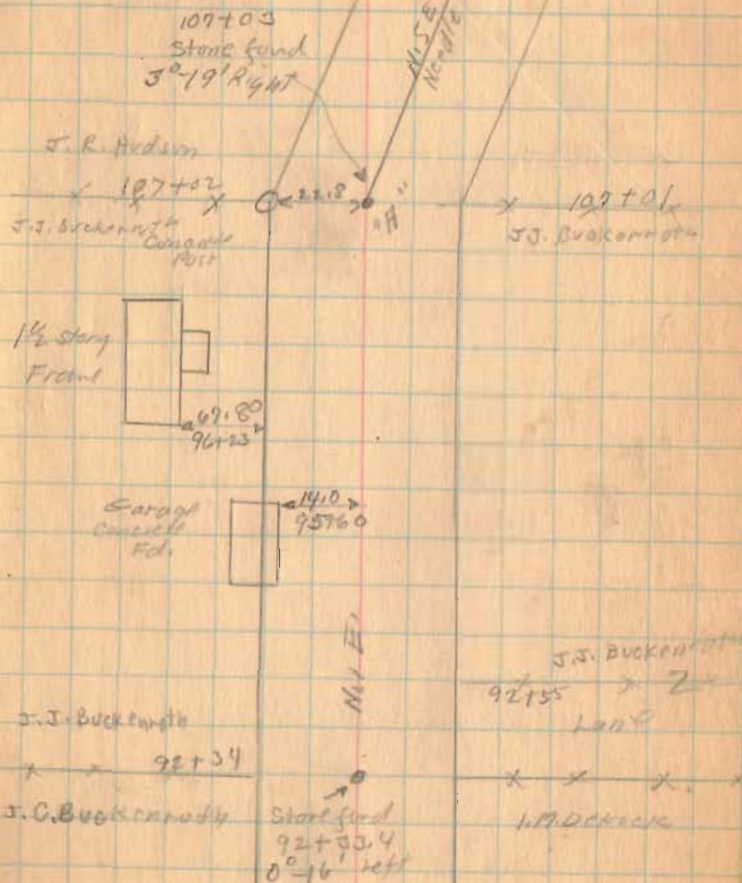 107+03
Stone found
3°-19' Right
N.5 E
Needle
J. R. Hudson
107+02
22.8
"A"
107+01
J.J. Buckenroth
Concrete
Post
J.J. Buckenroth
1½ Story
Frame
67.80
96+23
14.0
95+60
Garage
Concrete
Fdn
N.1 E.
J.J. Buckenroth
92+55
Lane
J.J. Buckenroth
92+34
J.C. Buckenroth
Stone found
92+33.4
0°-16' left